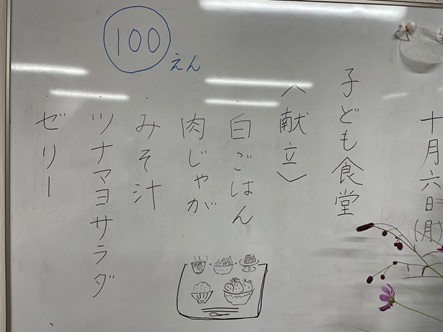 十月六日(月)
子ども食堂
〈献立〉
白ごはん
肉じゃが
みそ汁
ツナマヨサラダ
ゼリー
100
えん